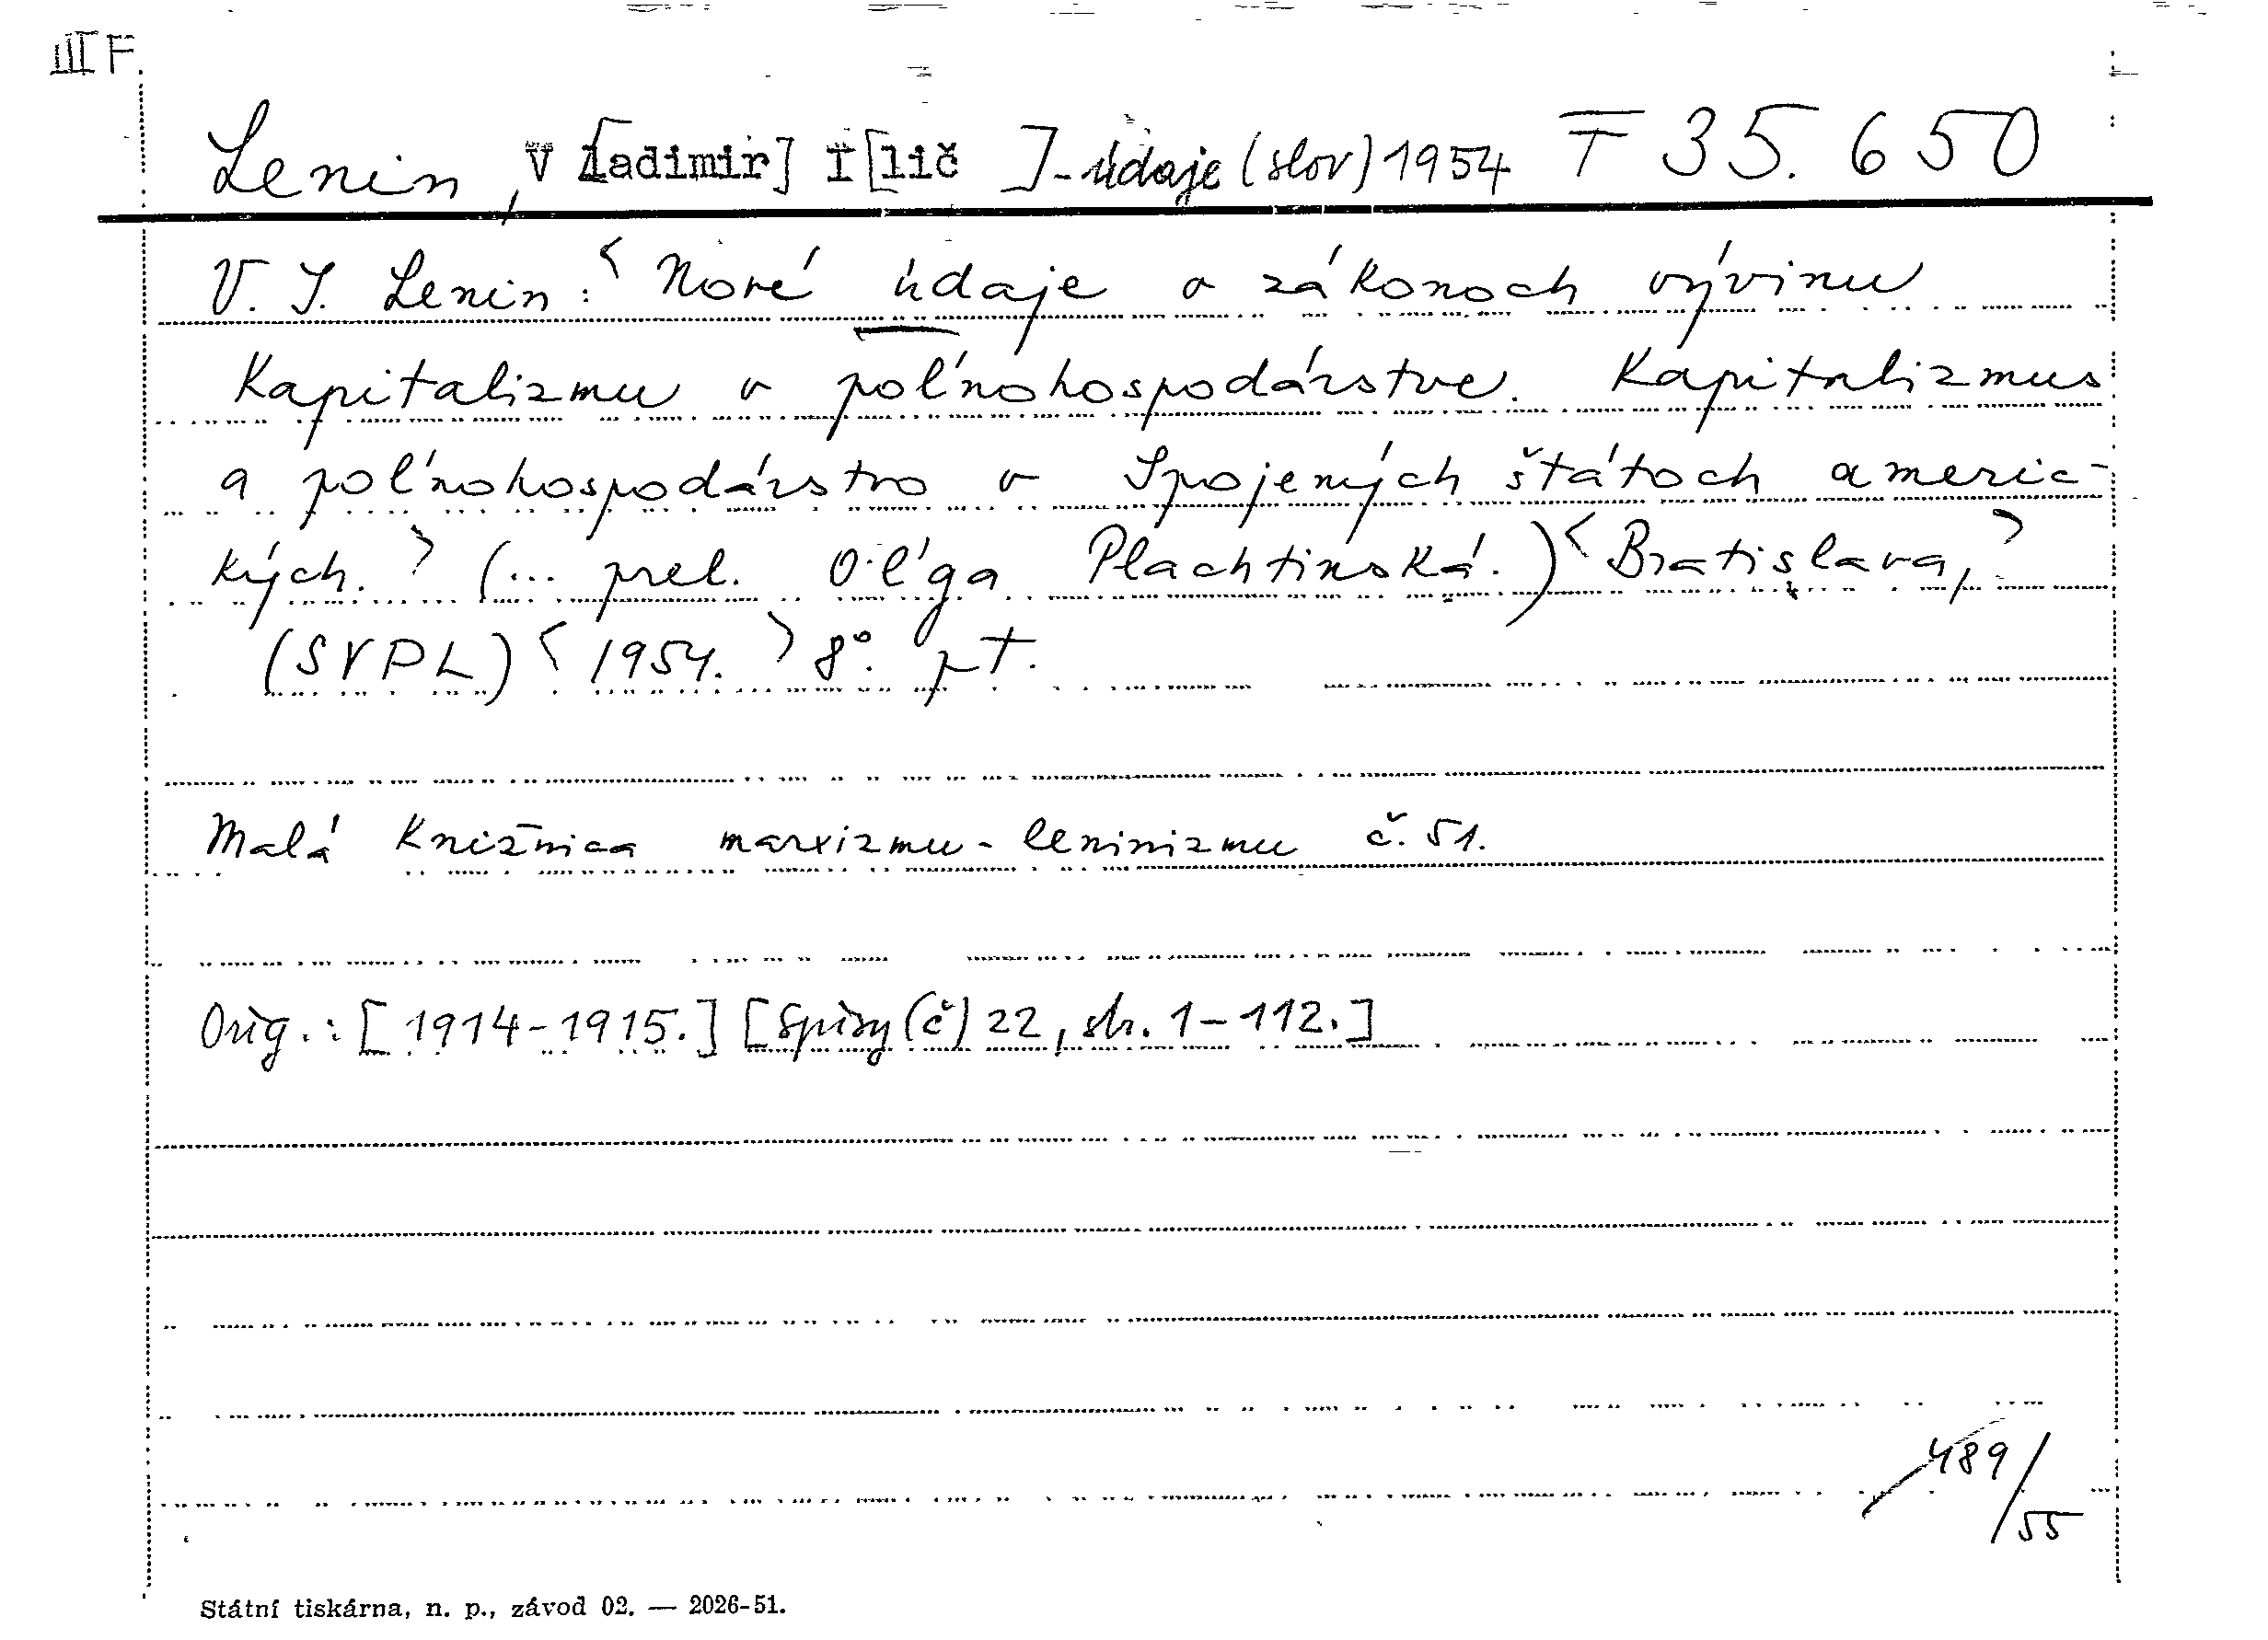 III F
Lenin, V[ladimir] I[lič ] - údaje (slov) 1954 F 35.650
V. I. Lenin: < Nové údaje o zákonoch vývinu
kapitalizmu v poľnohospodárstve. Kapitalizmus
a poľnohospodárstvo v Spojených štátoch americ-
kých. > (... prel. Oľga Plachtinská.) < Bratislava, >
(SVPL) < 1954. > 8°. pt.
Malá knižnica marxizmu-leninizmu č. 51.
Orig.: [1914-1915.] [Spisy (č) 22, str. 1-112.]
489/55
Státní tiskárna, n. p., závod 02. — 2026-51.